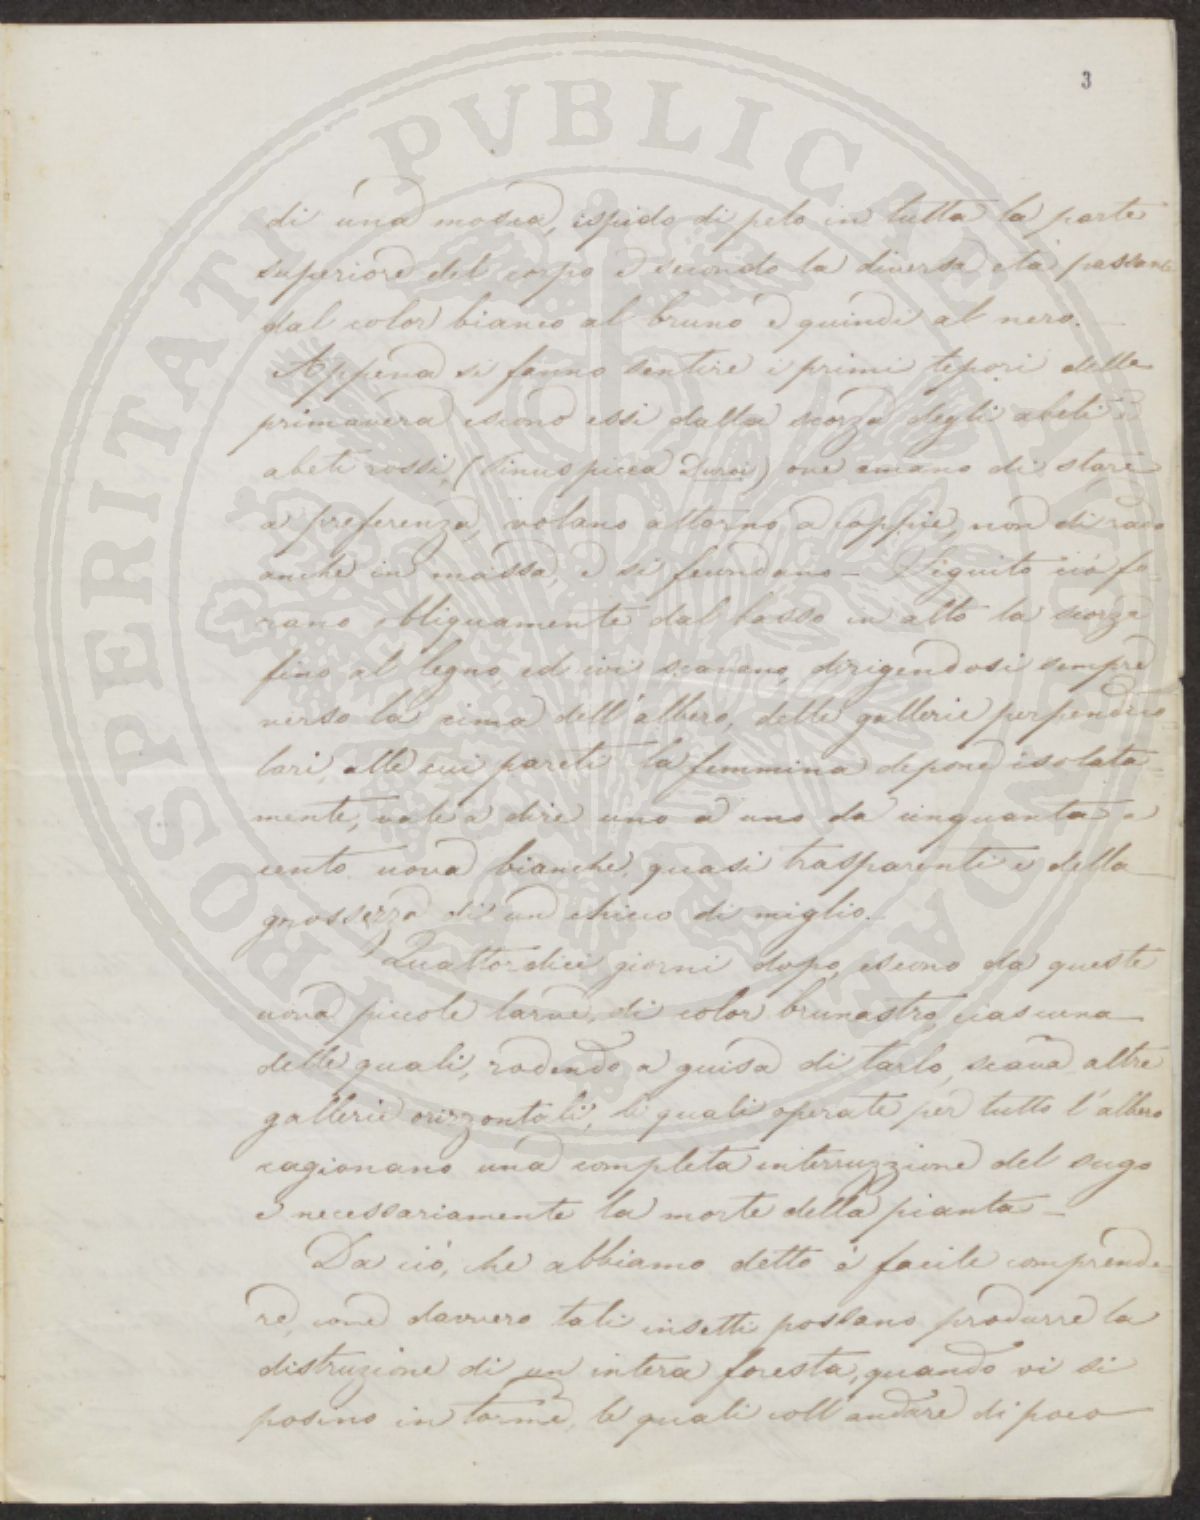 3
di una mosca, ispido di pelo in tutta la parte
superiore del corpo e secondo la diversa età passante
dal color bianco al bruno e quindi al nero.
Appena si fanno sentire i primi tepori della
primavera escono essi dalla scorza degli abeti e
abeti rossi, (Pinus picea Duroi) ove amano di stare
a preferenza, volano attorno a coppie, non di rado
anche in massa, e si fecundano – Seguito ciò fo-
rano obliquamente dal basso in alto la scorza
fino al legno, ed ivi scavano, dirigendosi sempre
verso la cima dell'albero, delle gallerie perpendico-
lari, alle cui pareti la femmina depone isolata-
mente, vale a dire uno a uno da cinquanta a
cento uova bianche, quasi trasparenti e della
grossezza di un chicco di miglio.
Quattordici giorni dopo, escono da queste
uova piccole larve, di color brunastro, ciascuna
delle quali, rodendo a guisa di tarlo, scava altre
gallerie orizzontali, le quali operate per tutto l'albero
cagionano una completa interruzzione del sugo
e necessariamente la morte della pianta –
Da ciò, che abbiamo detto è facile comprende-
re, come davvero tali insetti possano produrre la
distruzione di un intera foresta, quando vi si
posino in torme, le quali coll'andare di poco
PROSPERITATI PVBLICAE AVGENDAE